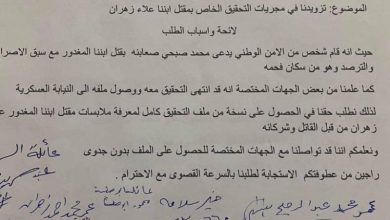 الموضوع: تزويدنا في مجريات التحقيق الخاص بمقتل ابننا علاء زهران
لائحة واسباب الطلب
حيث انه قام شخص من الامن الوطني يدعى محمد صبحي صعابنه بقتل ابننا المغدور مع سبق الاصرا
والترصد وهو من سكان فحمه
كما علمنا من بعض الجهات المختصة انه قد انتهى التحقيق معه ووصول ملفه الى النيابة العسكرية
لذلك نطلب حقنا في الحصول على نسخة من ملف التحقيق كامل لمعرفة ملابسات مقتل ابننا المغدور عا
زهران من قبل القاتل وشركائه
ونعلمكم اننا قد تواصلنا مع الجهات المختصة للحصول على الملف بدون جدوى
راجين من عطوفتكم الاستجابة لطلبنا بالسرعة القصوى مع الاحترام .
عائلة